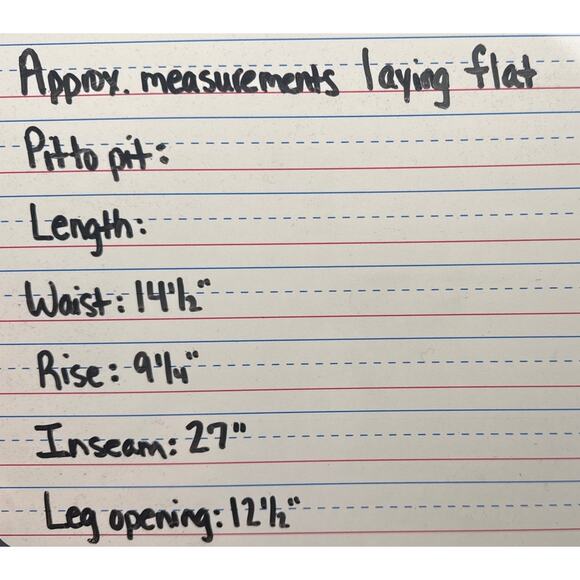 Approx. measurements laying flat
Pit to pit:
Length:
Waist: 14 1/2"
Rise: 9 1/4"
Inseam: 27"
Leg opening: 12 1/2"